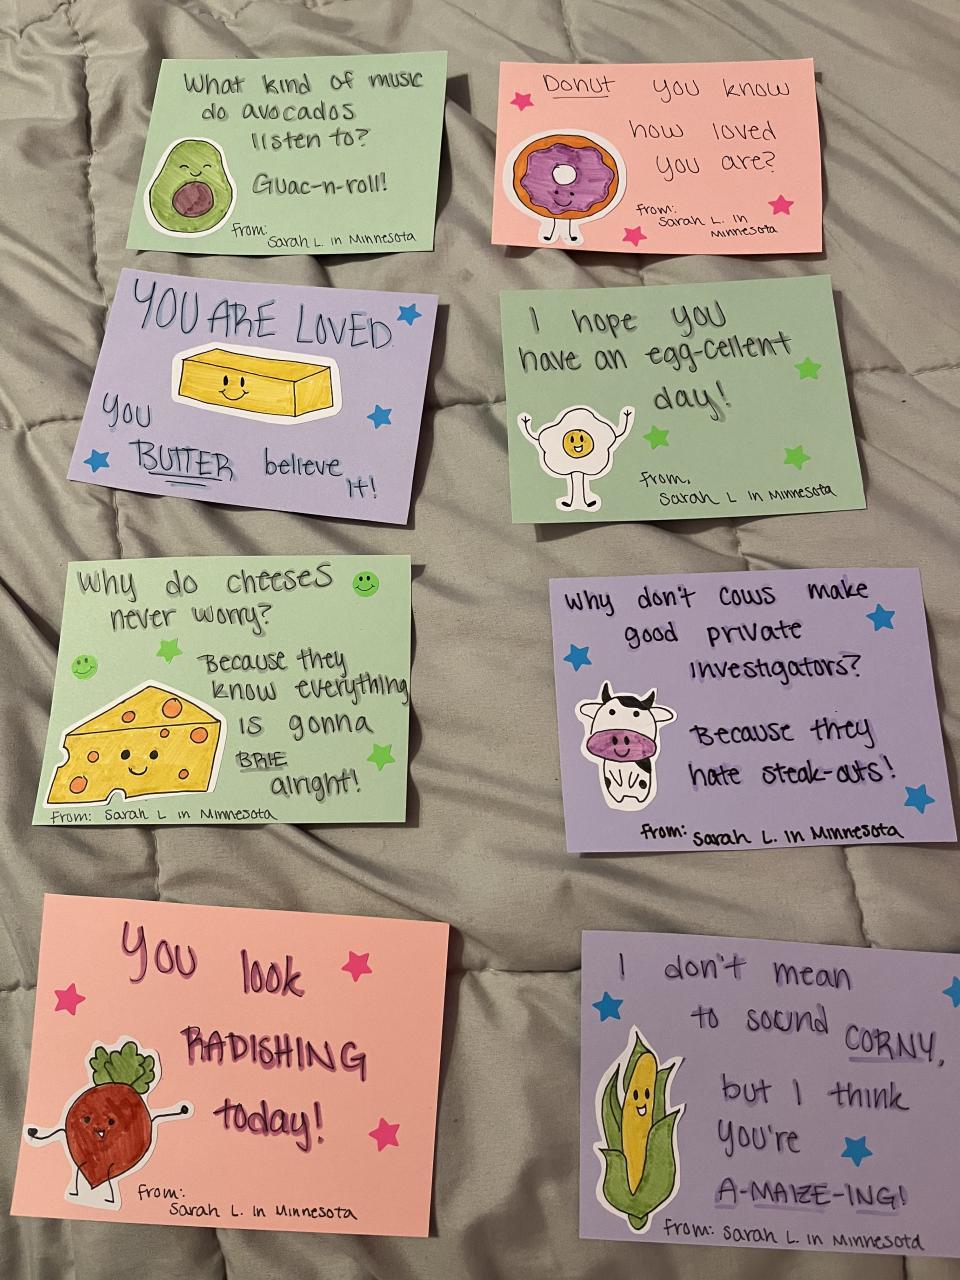 What kind of music
do avocados
listen to?
Guac-n-roll!
From:
Sarah L. in Minnesota
Donut you know
how loved
you are?
From:
Sarah L. in
Minnesota
YOU ARE LOVED
you
BUTTER believe
it!
I hope you
have an egg-cellent
day!
From,
Sarah L in Minnesota
Why do cheeses
never worry?
Because they
know everything
is gonna
BRIE
alright!
From: Sarah L in Minnesota
Why don't cows make
good private
investigators?
Because they
hate steak-outs!
From: Sarah L. in Minnesota
You look
RADISHING
today!
From:
Sarah L. in Minnesota
I don't mean
to sound CORNY,
but I think
you're
A-MAIZE-ING!
From: Sarah L. in Minnesota